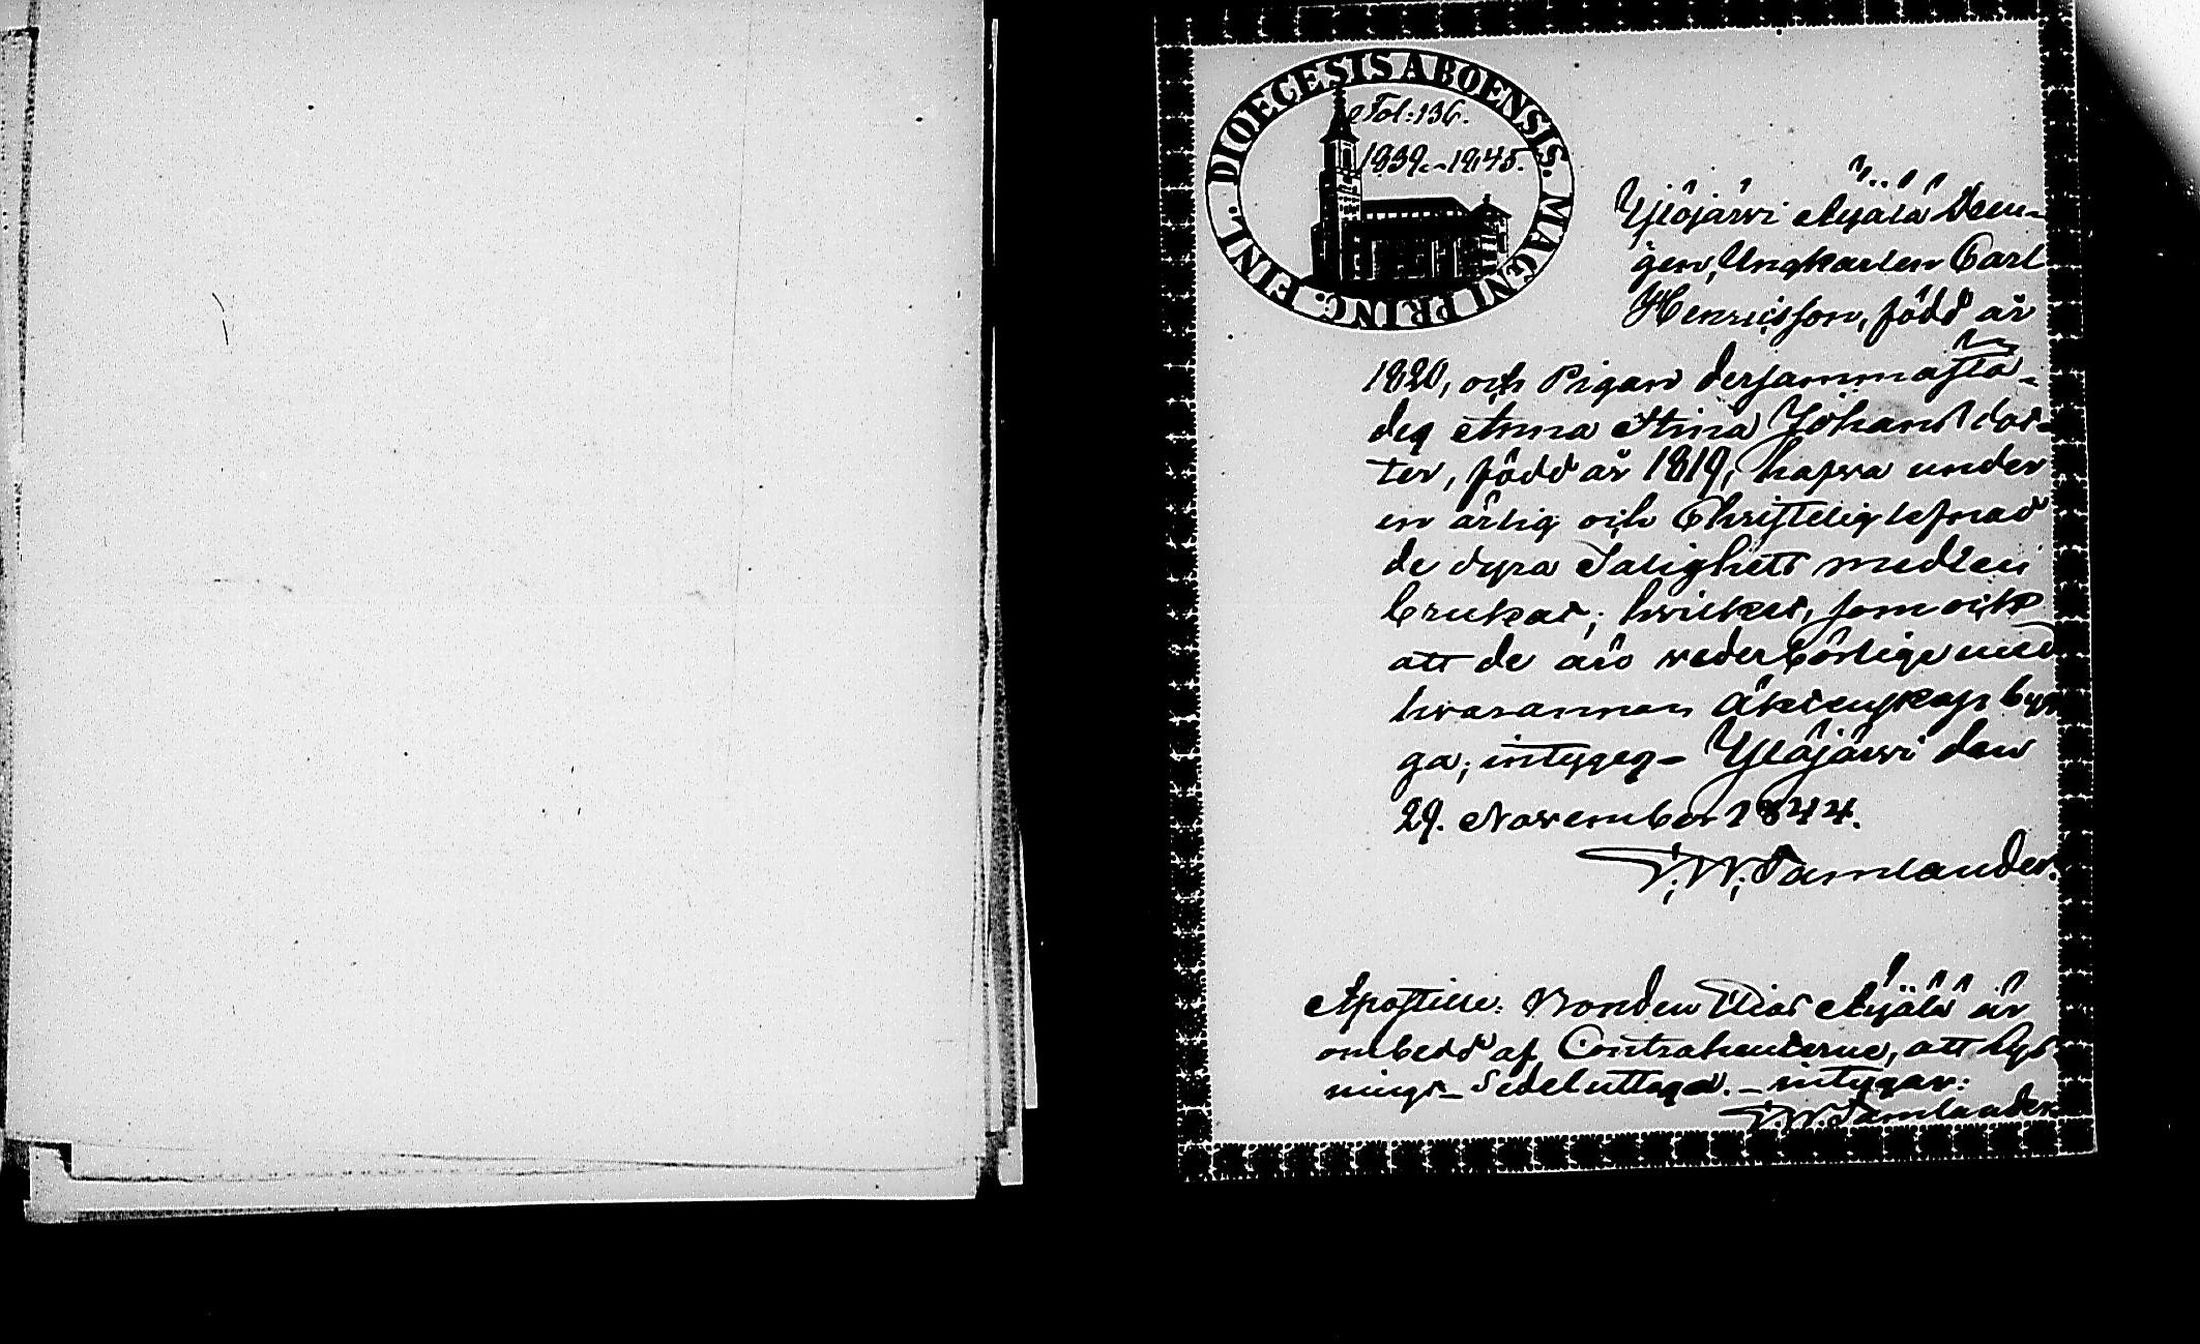 DIOECESIS ABOENSIS. MAGNI PRINC. FINL.
Fol: 136.
1839.-1845.
Ylöjärvi Äijälä Dren-
gen, Ungkarlen Carl
Henricsson, född år
1820, och Pigan dersammastä-
des Anna Stina Johansdot-
ter, född år 1819, hafva under
en ärlig och Christelig lefnad
de dyra Salighets medlen
brukat; hvilket, som ock
att de äro vederbörlige med
hvarannan Äktenskap byg-
ga, intygeg- Ylöjärvi den
29. November 1844.
J. W. Pamlander.
Apostille: Bonden Elias Äijälä är
ombedd af Contrahenterne, att Lys-
nings-Sedel uttaga. - intygar:
J. W. Pamlander.